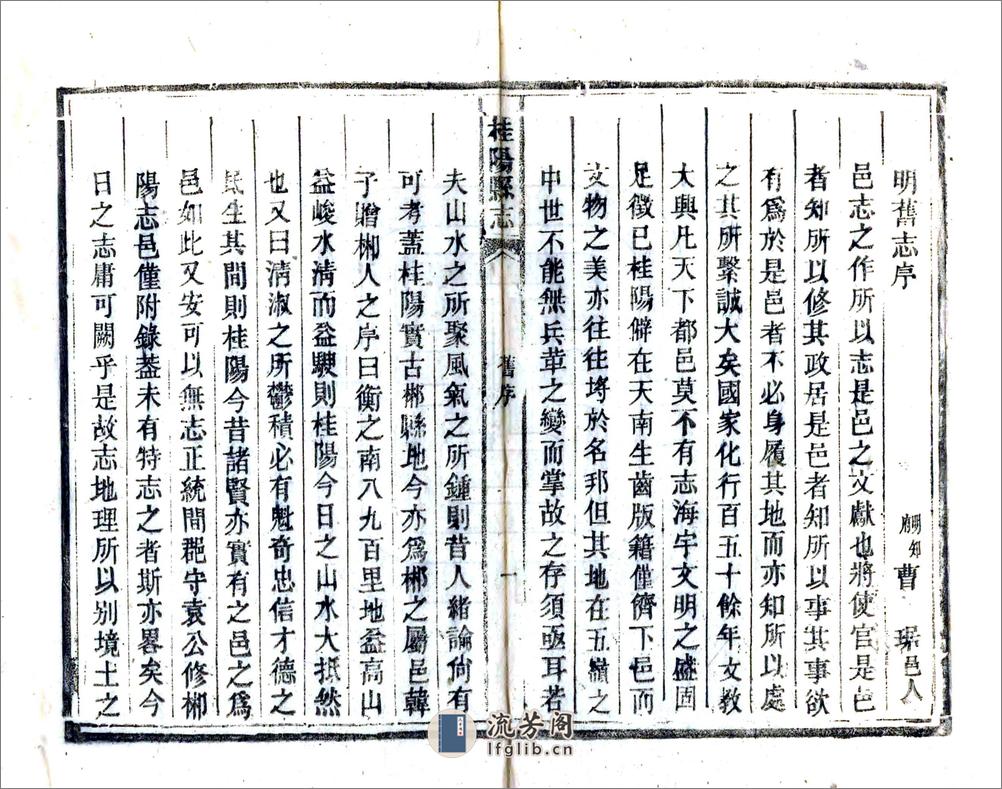 明舊志序
明知府曹琚邑人
邑志之作所以志是邑之文獻也將使官是邑
者知所以修其政居是邑者知所以事其事欲
有爲於是邑者不必身履其地而亦知所以處
之其所繫誠大矣國家化行百五十餘年文教
大興凡天下都邑莫不有志海宇文明之盛固
足徵已桂陽僻在天南生齒版籍僅儕下邑而
文物之美亦往往埓於名邦但其地在五嶺之
中世不能無兵革之變而掌故之存須亟耳若
桂陽縣志
舊序
一
夫山水之所聚風氣之所鍾則昔人緒論尙有
可考蓋桂陽實古郴縣地今亦爲郴之屬邑韓
子贈郴人之序曰衡之南八九百里地益高山
益峻水清而益駛則桂陽今日之山水大抵然
也又曰清淑之所鬱積必有魁奇忠信才德之
民生其間則桂陽今昔諸賢亦實有之邑之爲
邑如此又安可以無志正統間郡守袁公修郴
陽志邑僅附錄葢未有特志之者斯亦畧矣今
日之志庸可闕乎是故志地理所以别境土之
流芳阁
lfglib.cn